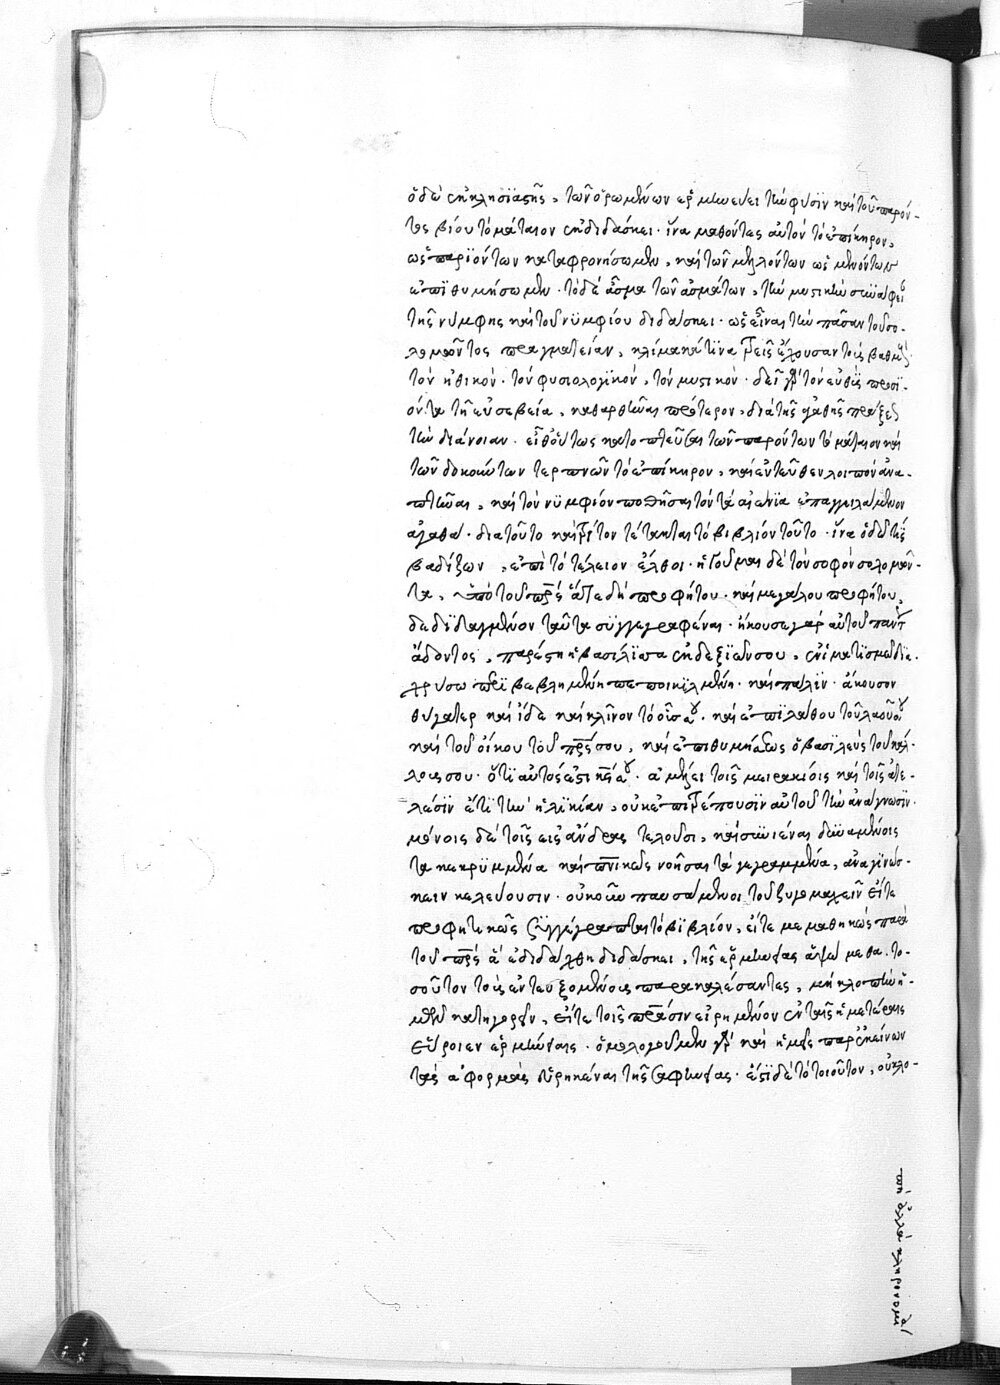 ὁ δὲ ἐκκλησιαστῆς, τῶν ὁρωμένων ἑρμηνεύει τὴν φύσιν καὶ τοῦ παρόν-
τος βίου τὸ μάταιον ἐκδιδάσκει· ἵνα μαθόντες αὐτὸν τὸ ἐπίκηρον,
ὡς παριόντων καταφρονήσωμεν, καὶ τῶν μελλόντων ὡς μενόντων
ἐπιθυμήσωμεν· τὸ δὲ ᾆσμα τῶν ᾀσμάτων, τὴν μυστικὴν συνάφειαν
τῆς νύμφης καὶ τοῦ νυμφίου διδάσκει· ὡς εἶναι τὴν πᾶσαν τοῦ σο-
λομῶντος πραγματείαν, κλίμακά τινα τρεῖς ἔχουσαν τοὺς βαθμούς·
τὸν ἠθικόν· τὸν φυσιολογικόν, τὸν μυστικόν· δεῖ γὰρ τὸν εὐθὺς προσι-
όντα τῇ εὐσεβεία, καθαρθῆναι πρότερον, διὰ τῆς ἀγαθῆς πράξεως
τὴν διάνοιαν· εἶθ' οὕτως κατοπτεῦσαι τῶν παρόντων τὸ μάταιον καὶ
τῶν δοκούντων τερπνῶν τὸ ἐπίκηρον, καὶ ἐντεῦθεν λοιπὸν ἀνα-
πτῆναι, καὶ τὸν νυμφίον ποθῆσαι τὸν τὰ αἰώνια ἐπαγγειλάμενον
ἀγαθά· διὰ τοῦτο καὶ τρίτον τέτακται τὸ βιβλίον τοῦτο· ἵνα ὁδῷ τις
βαδίζων, ἐπὶ τὸ τέλειον ἔλθοι· ἡγοῦμαι δὲ τὸν σοφὸν σολομῶν-
τα, ὑπὸ τοῦ πρς ἅτε δὴ προφήτου· καὶ μεγάλου προφήτου,
δεδιδαγμένον ταῦτα συγγεγραφέναι· ἤκουσε γὰρ αὐτοῦ
ᾄδοντος, παρέστη ἡ βασίλισσα ἐκ δεξιῶν σου, ἐν ἱματισμῷ δια-
χρύσω περιβεβλημένη πεποικιλμένη· καὶ πάλιν· ἄκουσον
θύγατερ καὶ ἴδε καὶ κλῖνον τὸ οὖς σου· καὶ ἐπιλάθου τοῦ λαοῦ σου
καὶ τοῦ οἴκου τοῦ πρς σου, καὶ ἐπιθυμήσει ὁ βασιλεὺς τοῦ κάλ-
λους σου· ὅτι αὐτός ἐστι κς σου· ἀμέλει τοῖς μειρακίοις καὶ τοῖς ἀτε-
λέσιν ἔτι τὴν ἡλικίαν, οὐκ ἐπιτρέπουσιν αὐτοῦ τὴν ἀνάγνωσιν·
μόνοις δὲ τοῖς εἰς ἄνδρας τελοῦσι, καὶ συνιέναι δυναμένοις
τὰ κεκρυμμένα καὶ πνικῶς νοῆσαι τὰ γεγραμμένα, ἀναγινώσ-
κειν κελεύουσιν· οὐκοῦν παυσάμενοι τοῦ ζυγομαχεῖν εἴτε
προφητικῶς συγγέγραπται τὸ βιβλίον, εἴτε μεμαθηκὼς παρὰ
τοῦ πρς ἃ ἐδιδάχθη διδάσκει, τῆς ἑρμηνείας ἁψώμεθα. το-
σοῦτον τοὺς ἐντευξομένους παρακαλέσαντες, μὴ κλοπὴν ἡ-
μῶν κατηγορεῖν, εἴτε τοῖς πράσιν εἰρημένον ἐν ταῖς ἡμετέραις
εὕροιεν ἑρμηνείαις· ὁμολογοῦμεν γὰρ καὶ ἡμεῖς παρ' ἐκείνων
τὰς ἀφορμὰς εἰρηκέναι τῆς σαφηνείας· ἔστι δὲ τὸ τοιοῦτον, οὐ κλο-
πὴ ἀλλὰ κληρονομία